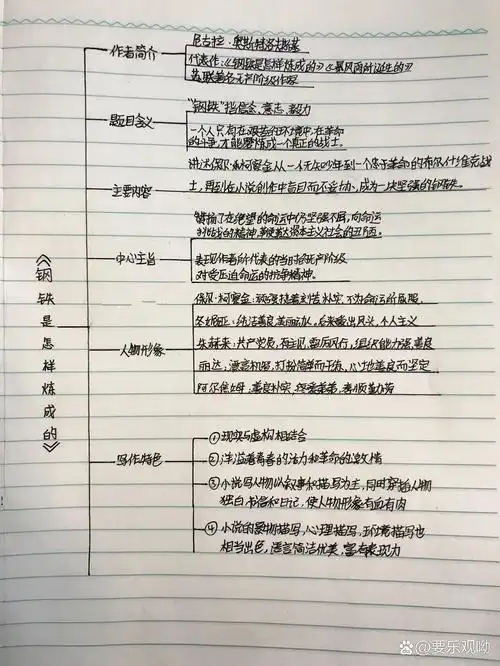 《钢铁是怎样炼成的》
作者简介
尼古拉·奥斯特洛夫斯基
代表作:《钢铁是怎样炼成的》《暴风雨所诞生的》
苏联著名无产阶级作家
题目含义
"钢铁"指信念、意志、毅力
一个人只有在艰苦的环境中,在革命
的斗争,才能要炼成一个真正的战士.
主要内容
讲述保尔·柯察金从一个无知少年到一个忠于革命的布尔什维克战
士,再到在小说创作中盲目而不妥协,成为一块坚强的钢铁.
中心主旨
赞扬了在绝望的命运中仍坚强不屈,向命运
挑战的精神,资本主义社会的丑陋.
表现作者所代表的当时的无产阶级
对受压迫命运的抗争精神.
人物形象
保尔·柯察金:刻苦朴实,不为命运所屈服.
冬妮亚:纯洁善良美丽动人,后来爱出风头,个人主义
朱赫来:共产党员,有主见,雷厉风行,组织能力强,善良
丽达:语言机智,打扮简单而干练,心地善良而坚定
阿尔焦姆:善良朴实,孝顺勤劳
写作特色
①现实与虚构相结合
②洋溢着青春的活力和革命的激情
③小说写人物以叙事和描写为主,同时穿插人物
独白书信和日记,使人物形象有血有肉
④小说的景物描写,心理描写,环境描写也
相当出色,语言简洁优美,富有表现力
百家号/要乐观呦